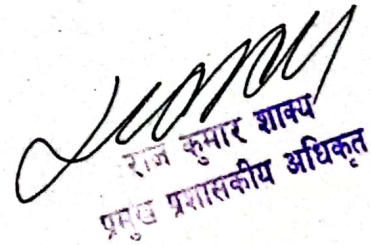 राज कुमार शाक्य
प्रमुख प्रशासकीय अधिकृत